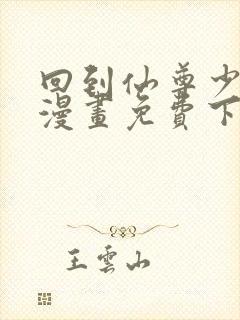 回到仙尊少
漫畫免費下
王雲山